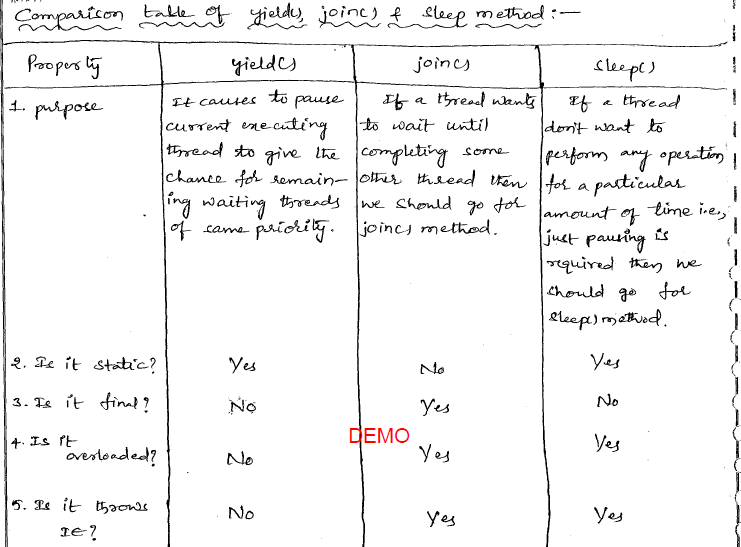 Comparison table of yield(), join() & sleep method :—
Property yield() join() sleep()
1. purpose
It causes to pause
current executing
thread to give the
chance for remain-
ing waiting threads
of same priority.
If a thread wants
to wait until
completing some
other thread then
we should go for
join() method.
If a thread
don't want to
perform any operation
for a particular
amount of time i.e.,
just pausing is
required then we
should go for
sleep() method.
2. Is it static? Yes No Yes
3. Is it final? No Yes No
DEMO
4. Is it
overloaded? No Yes Yes
5. Is it throws
IE? No Yes Yes